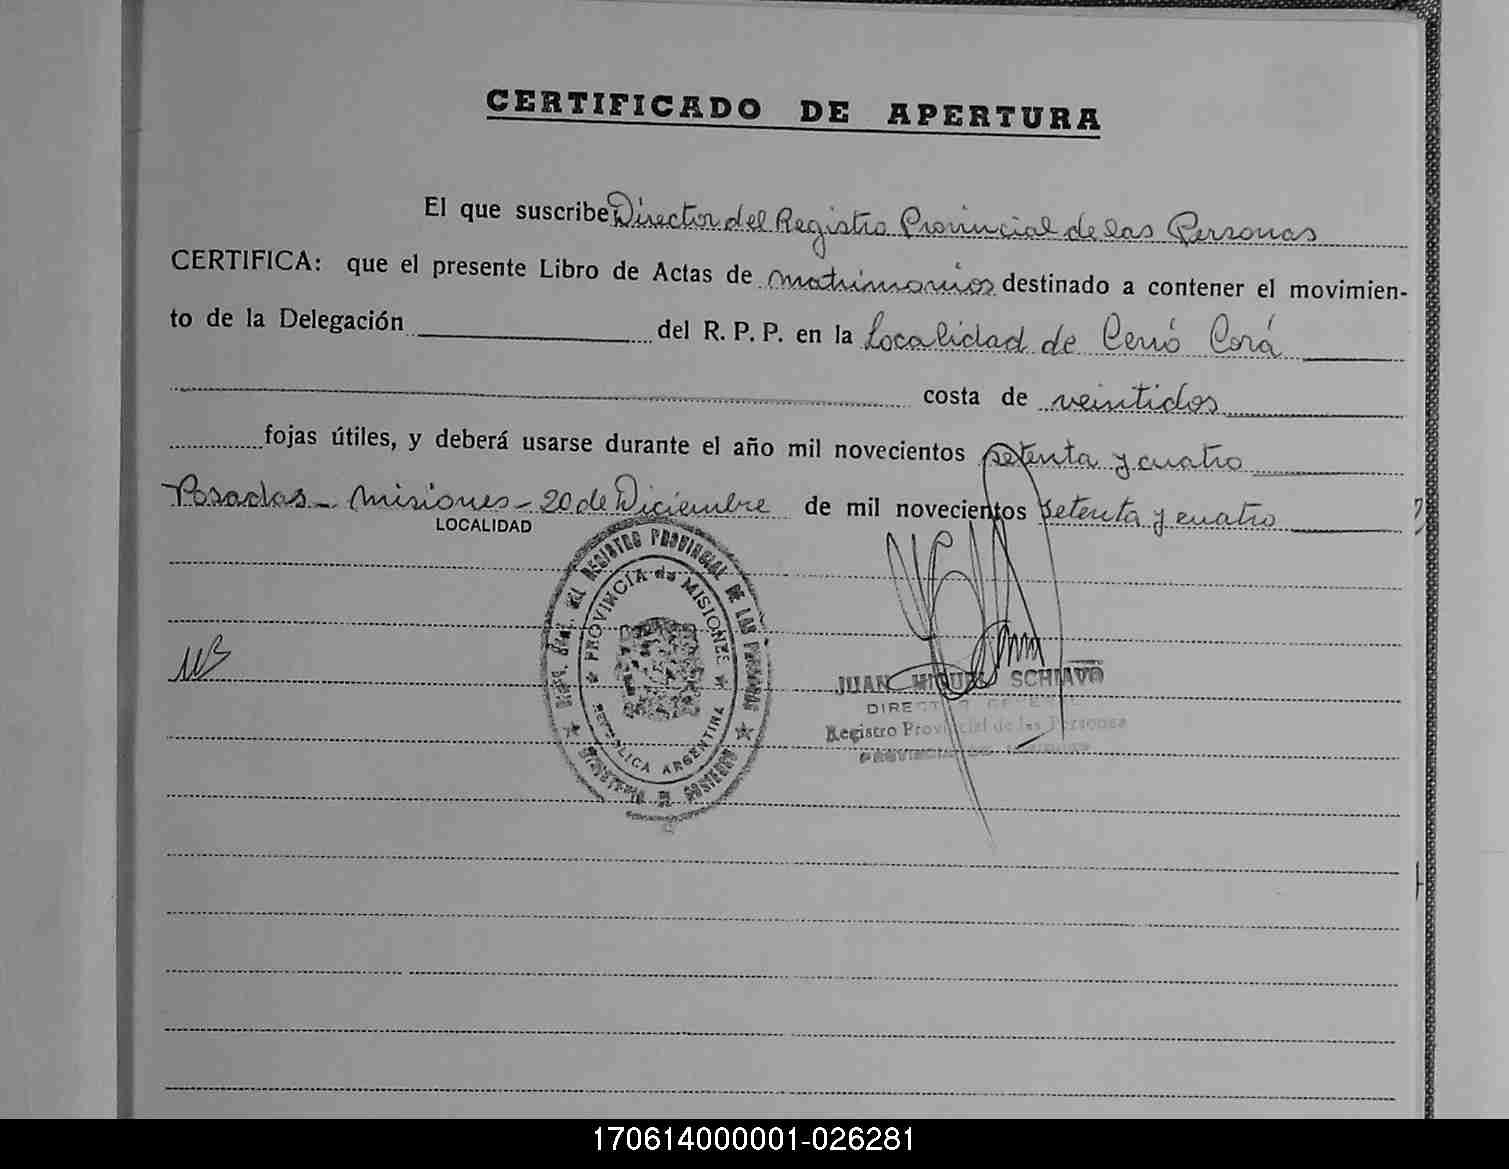 CERTIFICADO DE APERTURA
El que suscribe Director del Registro Provincial de las Personas
CERTIFICA: que el presente Libro de Actas de matrimonios destinado a contener el movimien-
to de la Delegación del R. P. P. en la Localidad de Cerró Corá
costa de veintidos
fojas útiles, y deberá usarse durante el año mil novecientos setenta y cuatro
Posadas - Misiones - 20 de Diciembre de mil novecientos setenta y cuatro
LOCALIDAD
DEL REGISTRO PROVINCIAL DE LAS PERSONAS
PROVINCIA de MISIONES
REPUBLICA ARGENTINA
MINISTERIO DE GOBIERNO
JUAN MIGUEL SCHIAVO
DIRECTOR GENERAL
Registro Provincial de las Personas
PROVINCIA DE MISIONES
170614000001-026281